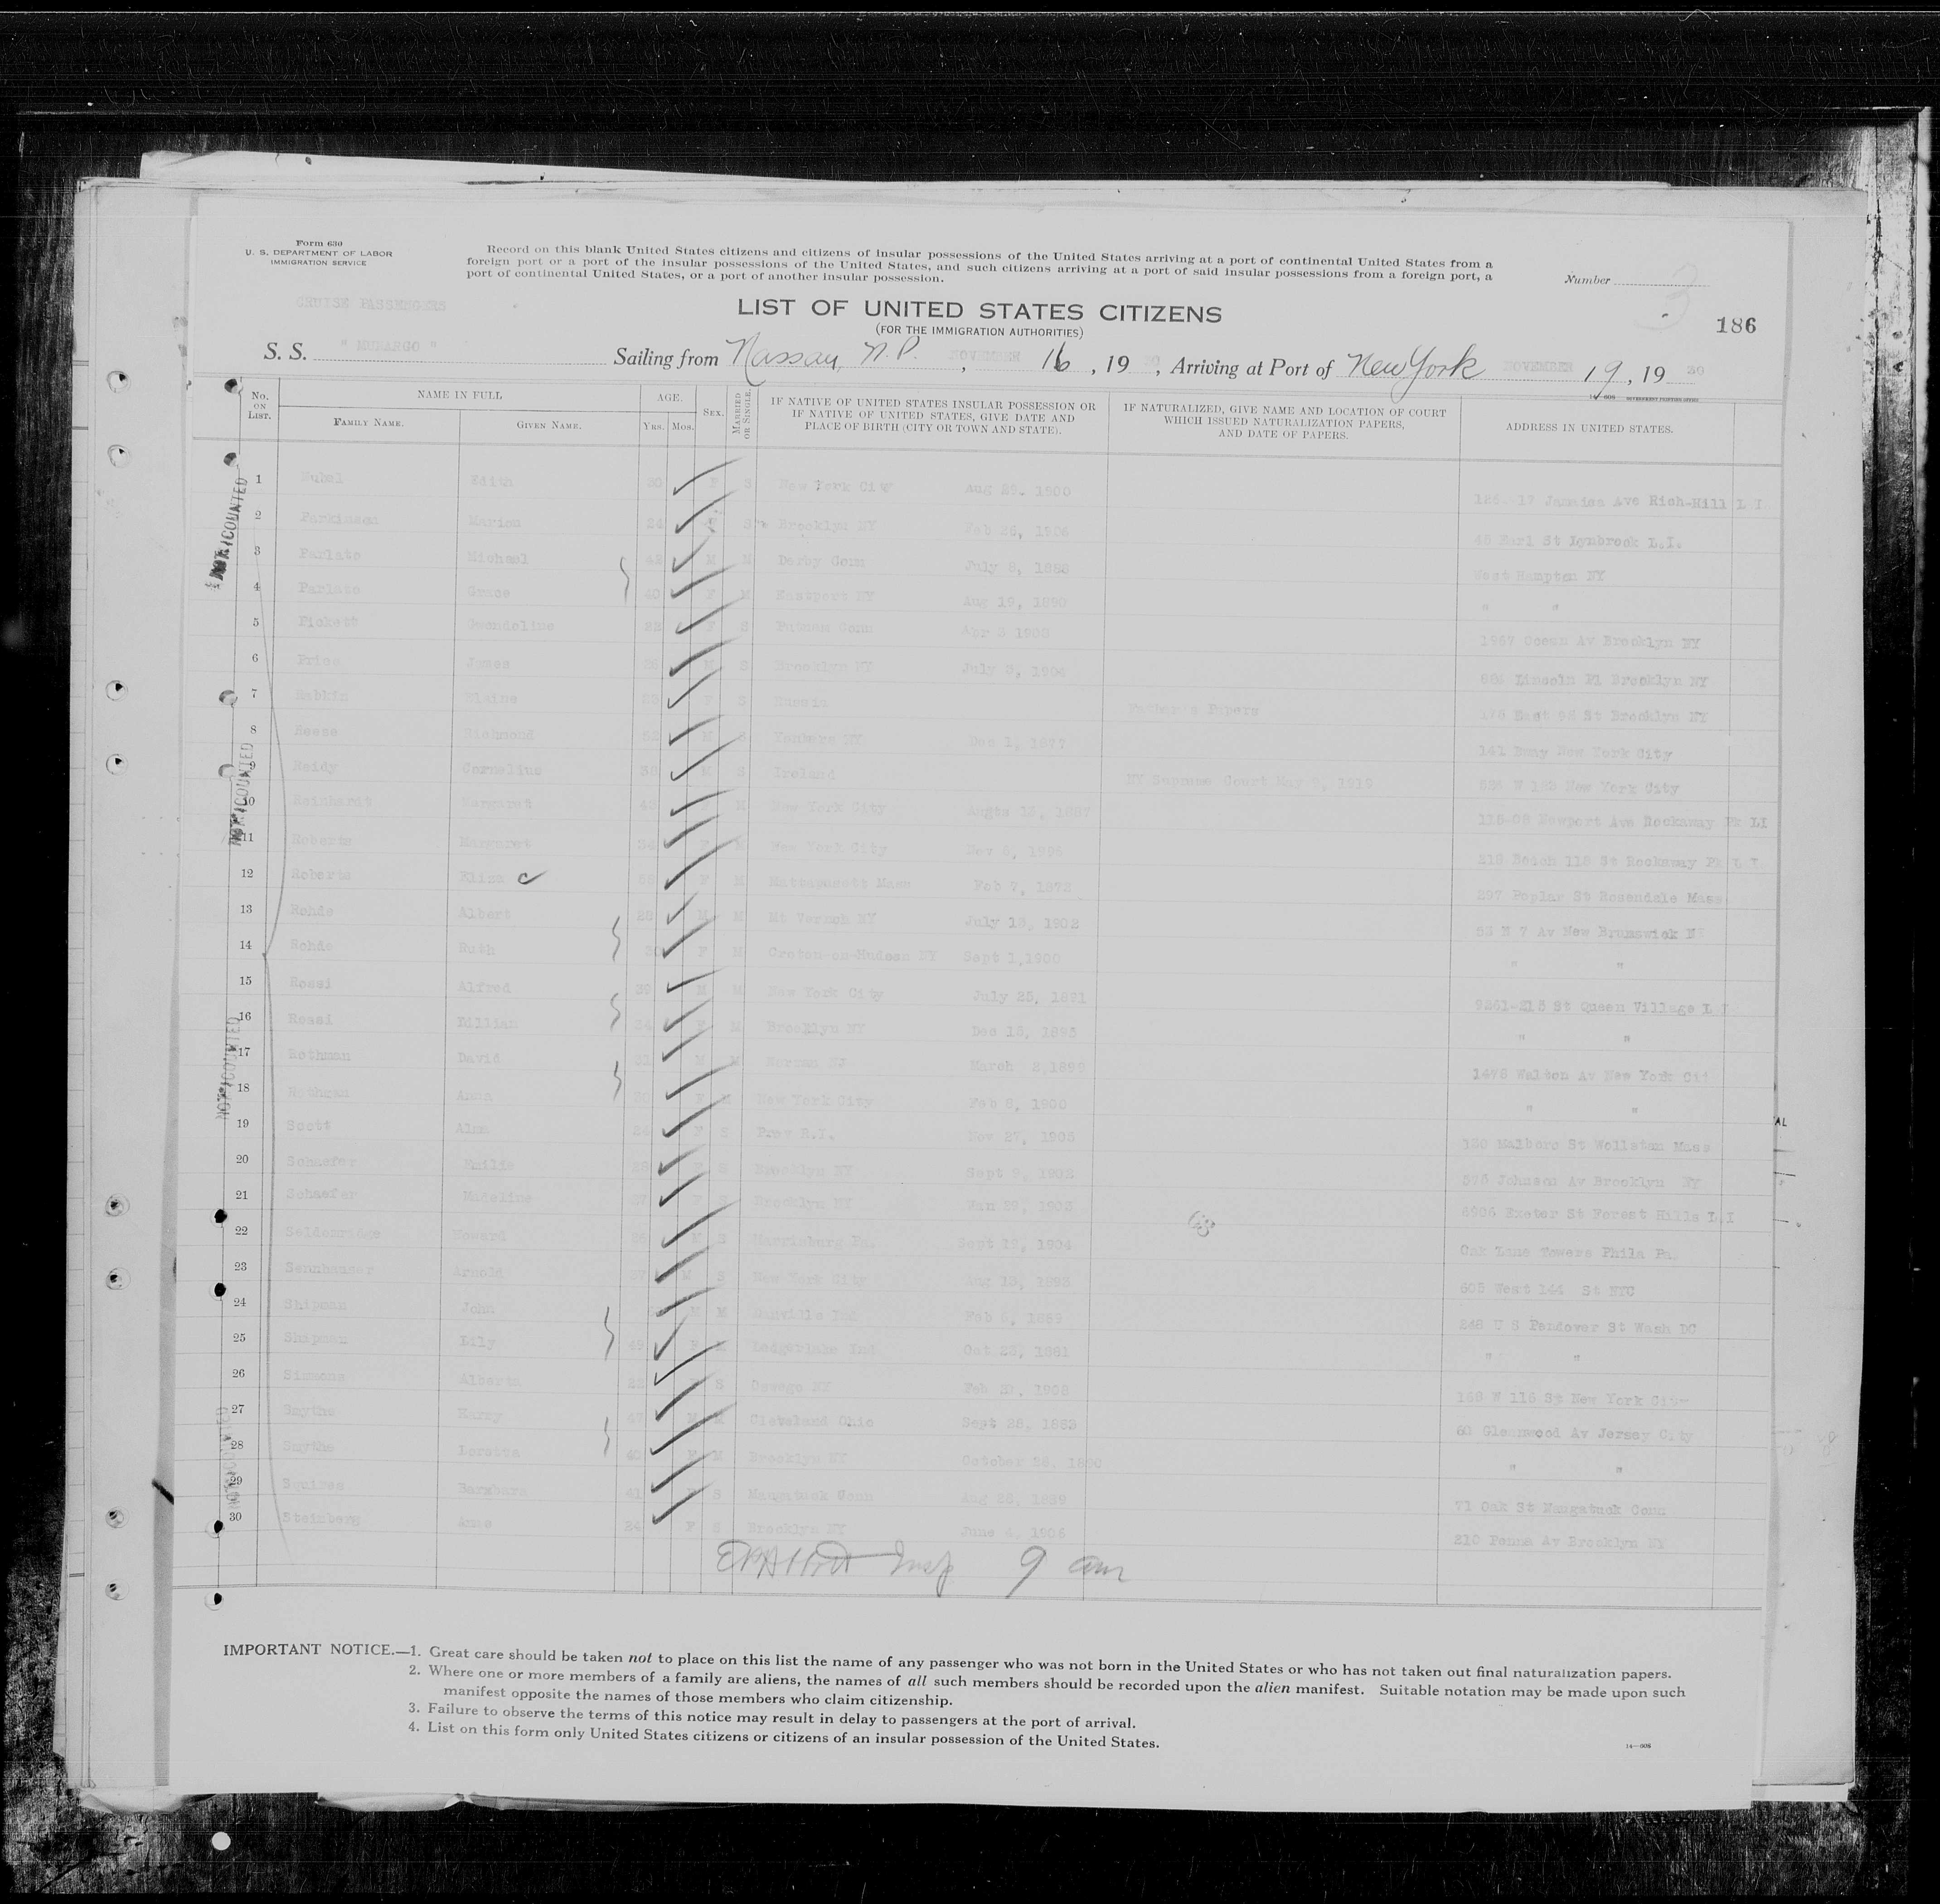 Form 630
U. S. DEPARTMENT OF LABOR
IMMIGRATION SERVICE
Record on this blank United States citizens and citizens of insular possessions of the United States arriving at a port of continental United States from a
foreign port or a port of the insular possessions of the United States, and such citizens arriving at a port of said insular possessions from a foreign port, a
port of continental United States, or a port of another insular possession.
Number 3
CRUISE PASSENGERS
LIST OF UNITED STATES CITIZENS
(FOR THE IMMIGRATION AUTHORITIES)
186
S. S. " MUNARGO " Sailing from Nassau, N.P. NOVEMBER 16, 1930, Arriving at Port of New York NOVEMBER 19, 1930
No. ON LIST. NAME IN FULL AGE. SEX. MARRIED OR SINGLE. IF NATIVE OF UNITED STATES INSULAR POSSESSION OR IF NATIVE OF UNITED STATES, GIVE DATE AND PLACE OF BIRTH (CITY OR TOWN AND STATE). IF NATURALIZED, GIVE NAME AND LOCATION OF COURT WHICH ISSUED NATURALIZATION PAPERS, AND DATE OF PAPERS. ADDRESS IN UNITED STATES.
FAMILY NAME. GIVEN NAME. YRS. MOS.
1 Edith 30 F S New York City Aug 29, 1900 Jamaica Ave Rich-Hill L I
2 Parkinson Marion 24 F S Brooklyn NY Feb 26, 1906 Earl St Lynbrook L.I.
3 Parlato Michael 42 M M Derby Conn July 8, 1888 West Hampton NY
4 Parlato Grace 40 F M Eastport NY Aug 19, 1890 " "
5 Pickett Gwendoline 22 F S Putnam Conn Apr 3 1908 1967 Ocean Av Brooklyn NY
6 Price James M S Brooklyn NY July 3, Lincoln Pl Brooklyn NY
7 Rabkin Elaine F S Russia Father's Papers East 98 St Brooklyn NY
8 Reese Richmond 52 M S Yonkers NY Dec 1, 1877 141 Bway New York City
9 Reidy Cornelius 38 M S Ireland NY Supreme Court May 9, 1919 W New York City
10 Reinhardt Margaret 43 F M New York City 1887 Newport Ave Rockaway Pk LI
11 Roberts Margaret F M New York City Nov 6, 219 Beach 118 St Rockaway Pk L I
12 Roberts Eliza C F M Mattapusett Mass Feb 7, 297 Poplar St Rosendale Mass
13 Rohde Albert 28 M M Mt Vernon NY July 15, 1902 N 7 Av New Brunswick
14 Rohde Ruth 30 F M Croton-on-Hudson NY Sept 1,1900 " "
15 Rossi Alfred 39 M M New York City July 25, 1891 St Queen Village L I
16 Rossi F M Brooklyn NY Dec 15, " "
17 Rothman David 31 M M NJ March 2,1899 1478 Walton Av New York Cit
18 Rothman Anna F M New York City Feb 8, 1900 " "
19 Scott F S Prov R.I. Nov 27, 1905 Malboro St Wollstan Mass
20 Schaefer Emilie 28 F S Brooklyn NY Sept 9, 1902 Johnson Av Brooklyn NY
21 Schaefer Madeline 27 F S Brooklyn NY Jan 29, 1903 6906 Exeter St Forest Hills L.I
22 Seldomridge Howard 26 M S Harrisburg Pa. Sept 19, 1904 Oak Lane Towers Phila Pa.
23 Sennhauser Arnold 37 M S New York City Aug 13, 1893 605 West 144 St NYC
24 Shipman John M M Danville Ind Feb 6, 1869 St Wash DC
25 Shipman Lily 49 F M Ind Oct 23, 1881 " "
26 Simmons Alberta 22 F S Oswego NY Feb 1908 W 116 St New York City
27 Smythe Harry 47 M M Cleveland Ohio Sept 28, 1883 60 Glennwood Av Jersey City
28 Smythe Loretta 40 F M Brooklyn NY October 28, 1890 " "
29 Squires Barabara 41 F S Naugatuck Conn Aug 28, 1889 71 Oak St Naugatuck Conn
30 Steinberg Anne 24 F S Brooklyn NY June 4, 1906 210 Penna Av Brooklyn NY
Insp 9 am
IMPORTANT NOTICE.—1. Great care should be taken not to place on this list the name of any passenger who was not born in the United States or who has not taken out final naturalization papers.
2. Where one or more members of a family are aliens, the names of all such members should be recorded upon the alien manifest. Suitable notation may be made upon such
manifest opposite the names of those members who claim citizenship.
3. Failure to observe the terms of this notice may result in delay to passengers at the port of arrival.
4. List on this form only United States citizens or citizens of an insular possession of the United States.
14—608